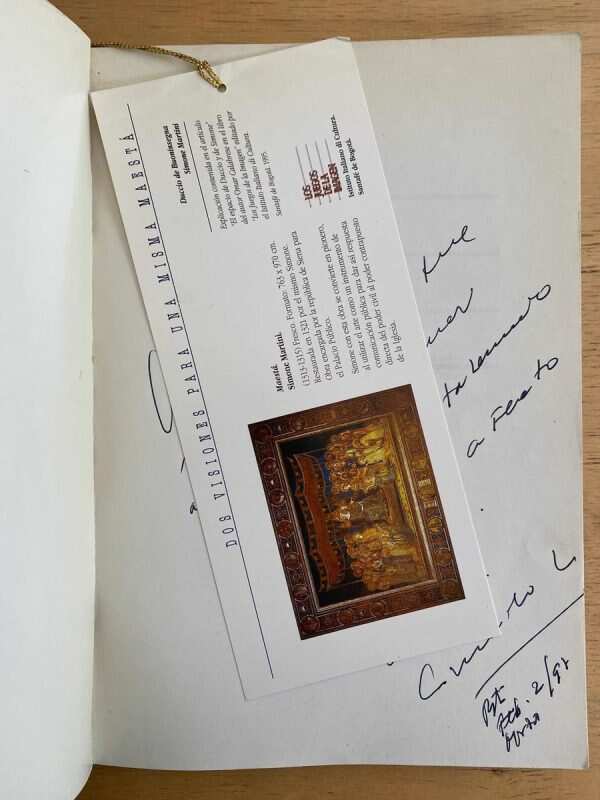 DOS VISIONES PARA UNA MISMA MAESTÁ
Duccio de Buoninsegna
Simone Martini
Explicación contenida en el artículo
"El espacio de Duccio y de Simone"
del autor Omar Calabrese en el libro
"Los Juegos de la Imagen" editado por
el Istituto Italiano di Cultura.
Santafé de Bogotá. 1995.
LOS
JUEGOS
DE LA
IMAGEN
Istituto Italiano di Cultura.
Santafé de Bogotá.
Maestá.
Simone Martini.
(1313-1315) Fresco. Formato: 763 x 970 cm.
Restaurada en 1321 por el mismo Simone.
Obra encargada por la república de Siena para
el Palacio Público.
Simone con esta obra se convierte en pionero,
al utilizar el arte como un instrumento de
comunicación pública para dar así respuesta
directa del poder civil al poder contrapuesto
de la Iglesia.
que
a
Feb. 2/92